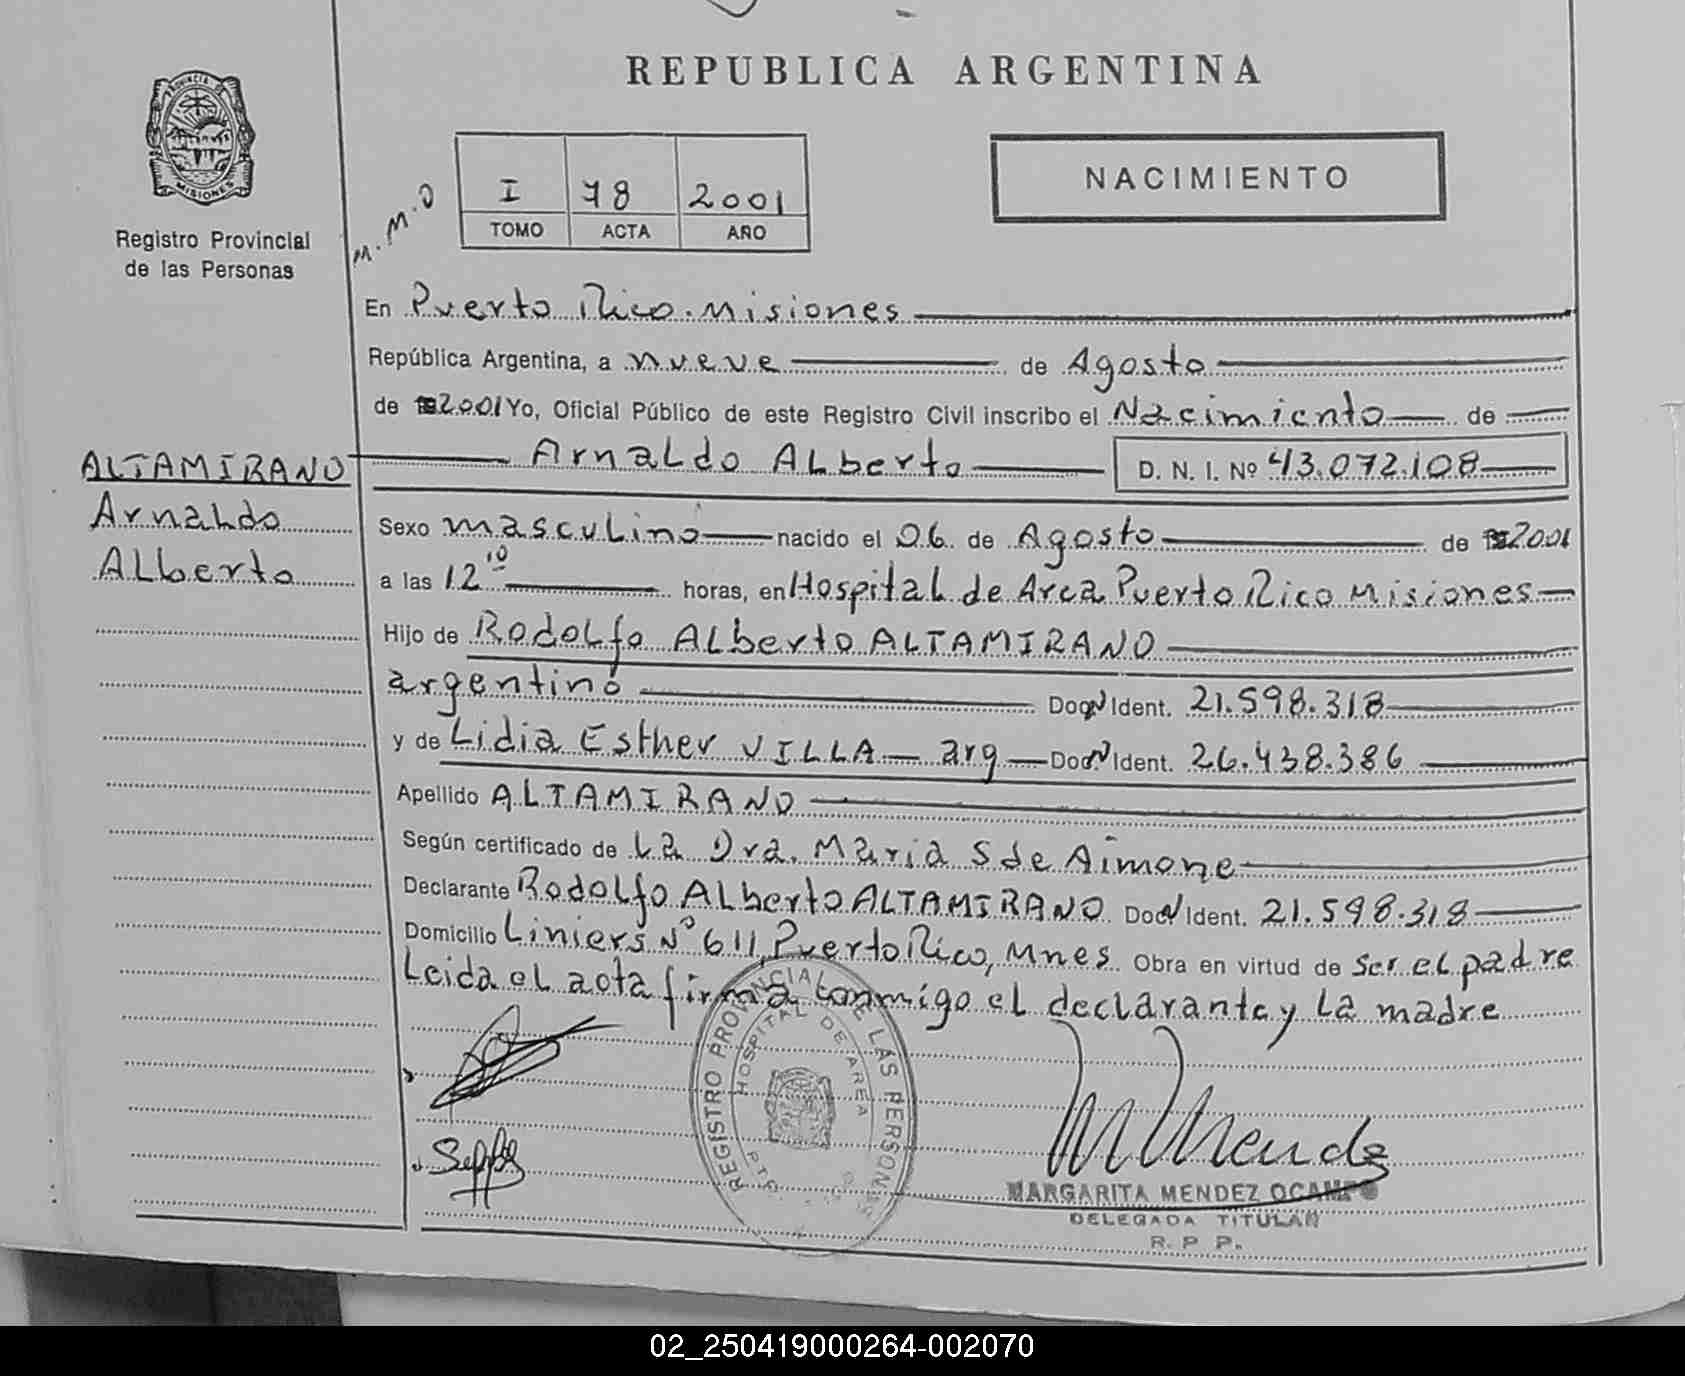 REPUBLICA ARGENTINA
PROVINCIA DE
MISIONES
Registro Provincial
de las Personas
M.M.O
I 78 2001
TOMO ACTA AÑO
NACIMIENTO
En Puerto Rico. Misiones
República Argentina, a nueve de Agosto
de 2001 Yo, Oficial Público de este Registro Civil inscribo el Nacimiento de
ALTAMIRANO Arnaldo Alberto D. N. I. Nº 43.072.108
Arnaldo
Alberto
Sexo masculino nacido el 06 de Agosto de 2001
a las 12 10 horas, en Hospital de Area Puerto Rico Misiones
Hijo de Rodolfo Alberto ALTAMIRANO
argentino Doc. N Ident. 21.598.318
y de Lidia Esther VILLA arg Doc. N Ident. 26.438.386
Apellido ALTAMIRANO
Según certificado de La Dra. Maria S de Aimone
Declarante Rodolfo Alberto ALTAMIRANO Doc. N Ident. 21.598.318
Domicilio Liniers Nº 611, Puerto Rico, Mnes Obra en virtud de ser el padre
Leida el acta firma conmigo el declarante y La madre
REGISTRO PROVINCIAL DE LAS PERSONAS
HOSPITAL DE AREA
PTO.
M Mendez
MARGARITA MENDEZ OCAMPO
DELEGADA TITULAR
R. P. P.
02_250419000264-002070